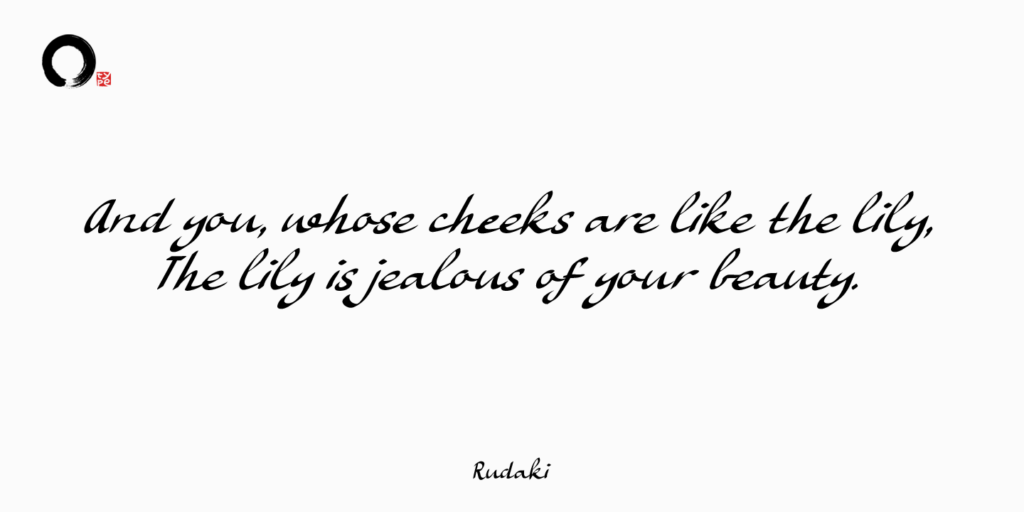 And you, whose cheeks are like the lily,
The lily is jealous of your beauty.
Rudaki